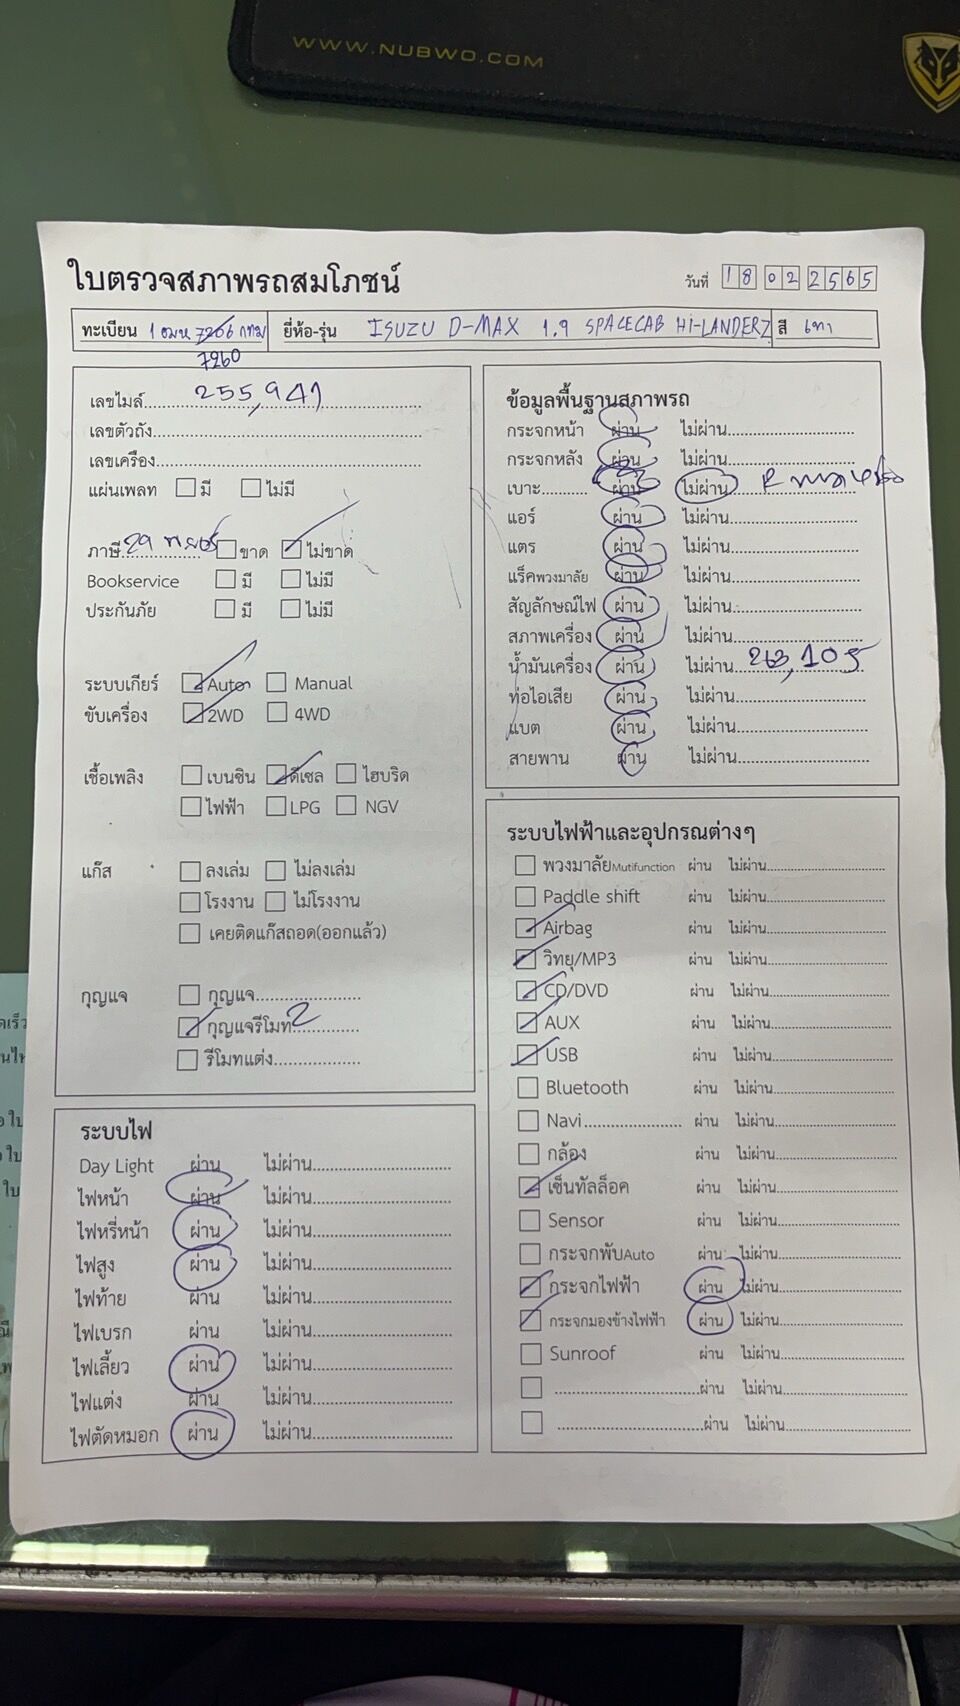 WWW.NUBWO.COM
ใบตรวจสภาพรถสมโภชน์
วันที่ 18 02 2565
ทะเบียน 1 ฒห 7266 กทม ยี่ห้อ-รุ่น ISUZU D-MAX 1.9 SPACECAB HI-LANDER Z สี เทา
7260
เลขไมล์ 255,941
เลขตัวถัง
เลขเครื่อง
แผ่นเพลท มี ไม่มี
ภาษี 29 ขาด ไม่ขาด
Bookservice มี ไม่มี
ประกันภัย มี ไม่มี
ระบบเกียร์ Auto Manual
ขับเครื่อง 2WD 4WD
เชื้อเพลิง เบนซิน ดีเซล ไฮบริด
ไฟฟ้า LPG NGV
แก๊ส ลงเล่ม ไม่ลงเล่ม
โรงงาน ไม่โรงงาน
เคยติดแก๊สถอด(ออกแล้ว)
กุญแจ กุญแจ
กุญแจรีโมท 2
รีโมทแต่ง
ระบบไฟ
Day Light ผ่าน ไม่ผ่าน
ไฟหน้า ผ่าน ไม่ผ่าน
ไฟหรี่หน้า ผ่าน ไม่ผ่าน
ไฟสูง ผ่าน ไม่ผ่าน
ไฟท้าย ผ่าน ไม่ผ่าน
ไฟเบรก ผ่าน ไม่ผ่าน
ไฟเลี้ยว ผ่าน ไม่ผ่าน
ไฟแต่ง ผ่าน ไม่ผ่าน
ไฟตัดหมอก ผ่าน ไม่ผ่าน
ข้อมูลพื้นฐานสภาพรถ
กระจกหน้า ผ่าน ไม่ผ่าน
กระจกหลัง ผ่าน ไม่ผ่าน
เบาะ ผ่าน ไม่ผ่าน
แอร์ ผ่าน ไม่ผ่าน
แตร ผ่าน ไม่ผ่าน
แร็คพวงมาลัย ผ่าน ไม่ผ่าน
สัญลักษณ์ไฟ ผ่าน ไม่ผ่าน
สภาพเครื่อง ผ่าน ไม่ผ่าน
น้ำมันเครื่อง ผ่าน ไม่ผ่าน 263,105
ท่อไอเสีย ผ่าน ไม่ผ่าน
แบต ผ่าน ไม่ผ่าน
สายพาน ผ่าน ไม่ผ่าน
ระบบไฟฟ้าและอุปกรณต่างๆ
พวงมาลัยMutifunction ผ่าน ไม่ผ่าน
Paddle shift ผ่าน ไม่ผ่าน
Airbag ผ่าน ไม่ผ่าน
วิทยุ/MP3 ผ่าน ไม่ผ่าน
CD/DVD ผ่าน ไม่ผ่าน
AUX ผ่าน ไม่ผ่าน
USB ผ่าน ไม่ผ่าน
Bluetooth ผ่าน ไม่ผ่าน
Navi ผ่าน ไม่ผ่าน
กล้อง ผ่าน ไม่ผ่าน
เซ็นทัลล็อค ผ่าน ไม่ผ่าน
Sensor ผ่าน ไม่ผ่าน
กระจกพับAuto ผ่าน ไม่ผ่าน
กระจกไฟฟ้า ผ่าน ไม่ผ่าน
กระจกมองข้างไฟฟ้า ผ่าน ไม่ผ่าน
Sunroof ผ่าน ไม่ผ่าน
ผ่าน ไม่ผ่าน
ผ่าน ไม่ผ่าน